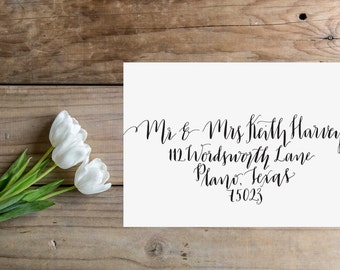 Mr & Mrs Keith Harvey
112 Wordsworth Lane
Plano, Texas
75023